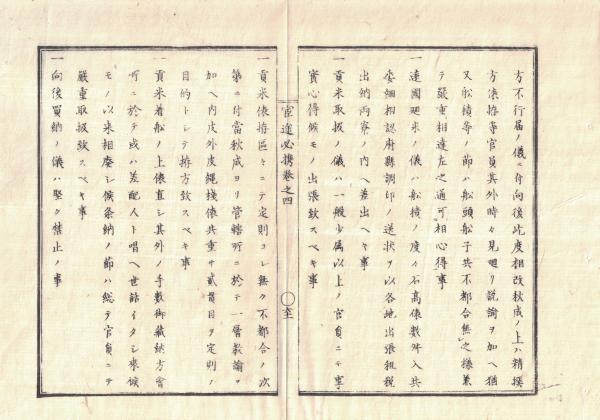 方不行届ノ儀ニ付向後屹度相改秋成ノ上ハ精撰
方俵拵等官員其外時々見廻リ説諭ヲ加ヘ猶
又船積等ノ節ハ船頭船子共不都合無之様兼
テ頭重相達左之通可相心得事
一 遠國廻米ノ儀ハ船積ノ度々石高俵数舛入共
委細相認府縣調印ノ送状ヲ以各地出張租税
出納両寮ノ内ヘ差出ヘキ事
一 貢米取扱ノ儀ハ一般少属以上ノ官員ニテ事
實心得候モノ出張致スヘキ事
官途必携巻之四
一 貢米俵拵區々ニテ定則コレ無ク不都合ノ次
第ニ付當秋成ヨリ管轄所ニ於テ一層教諭ヲ
加ヘ内皮外皮縄掛俵共重サ貳貫目ヲ定則ノ
目的トシテ拵方致スヘキ事
一 貢米着船ノ上俵直シ其外ノ手数御蔵納方會
所ニ於テ或ハ差配人ト唱ヘ世話イタシ来候
モノ以来相廃シ候条納ノ節ハ総テ官員ニテ
嚴重取扱致スヘキ事
一 向後買納ノ儀ハ堅ク禁止ノ事